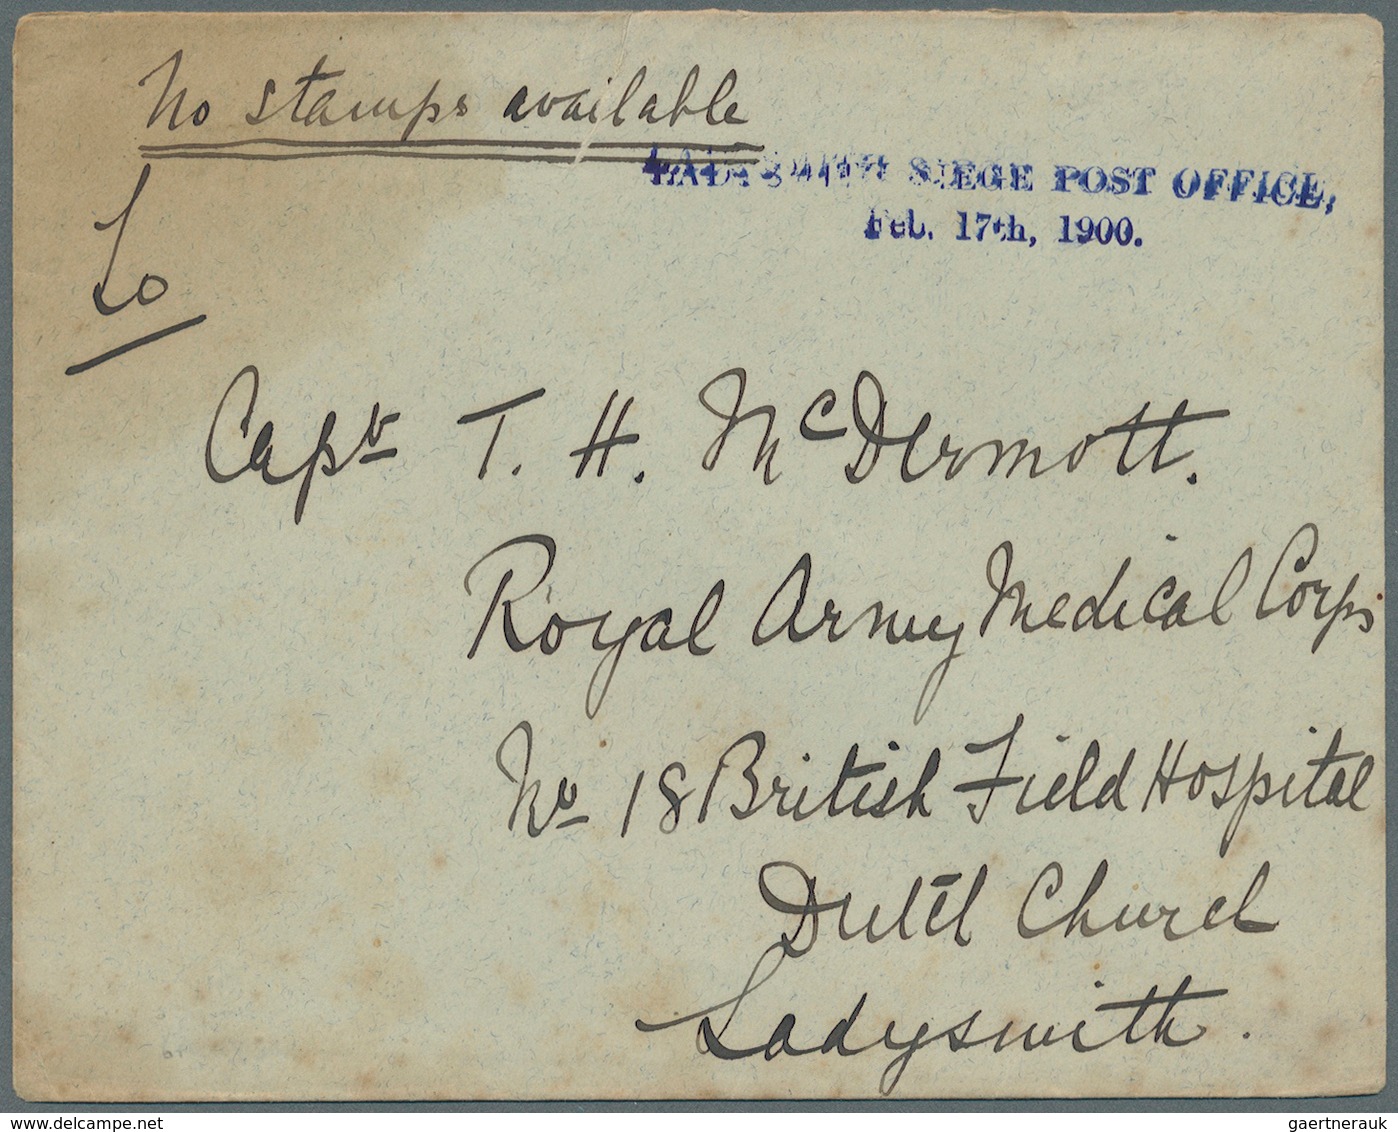 No stamps available
LADYSMITH SIEGE POST OFFICE,
Feb. 17th, 1900.
To
Capt T. H. McDermott.
Royal Army Medical Corps
No 18 British Field Hospital
Dutch Church
Ladysmith.
www.delcampe.net
gaertnerauk